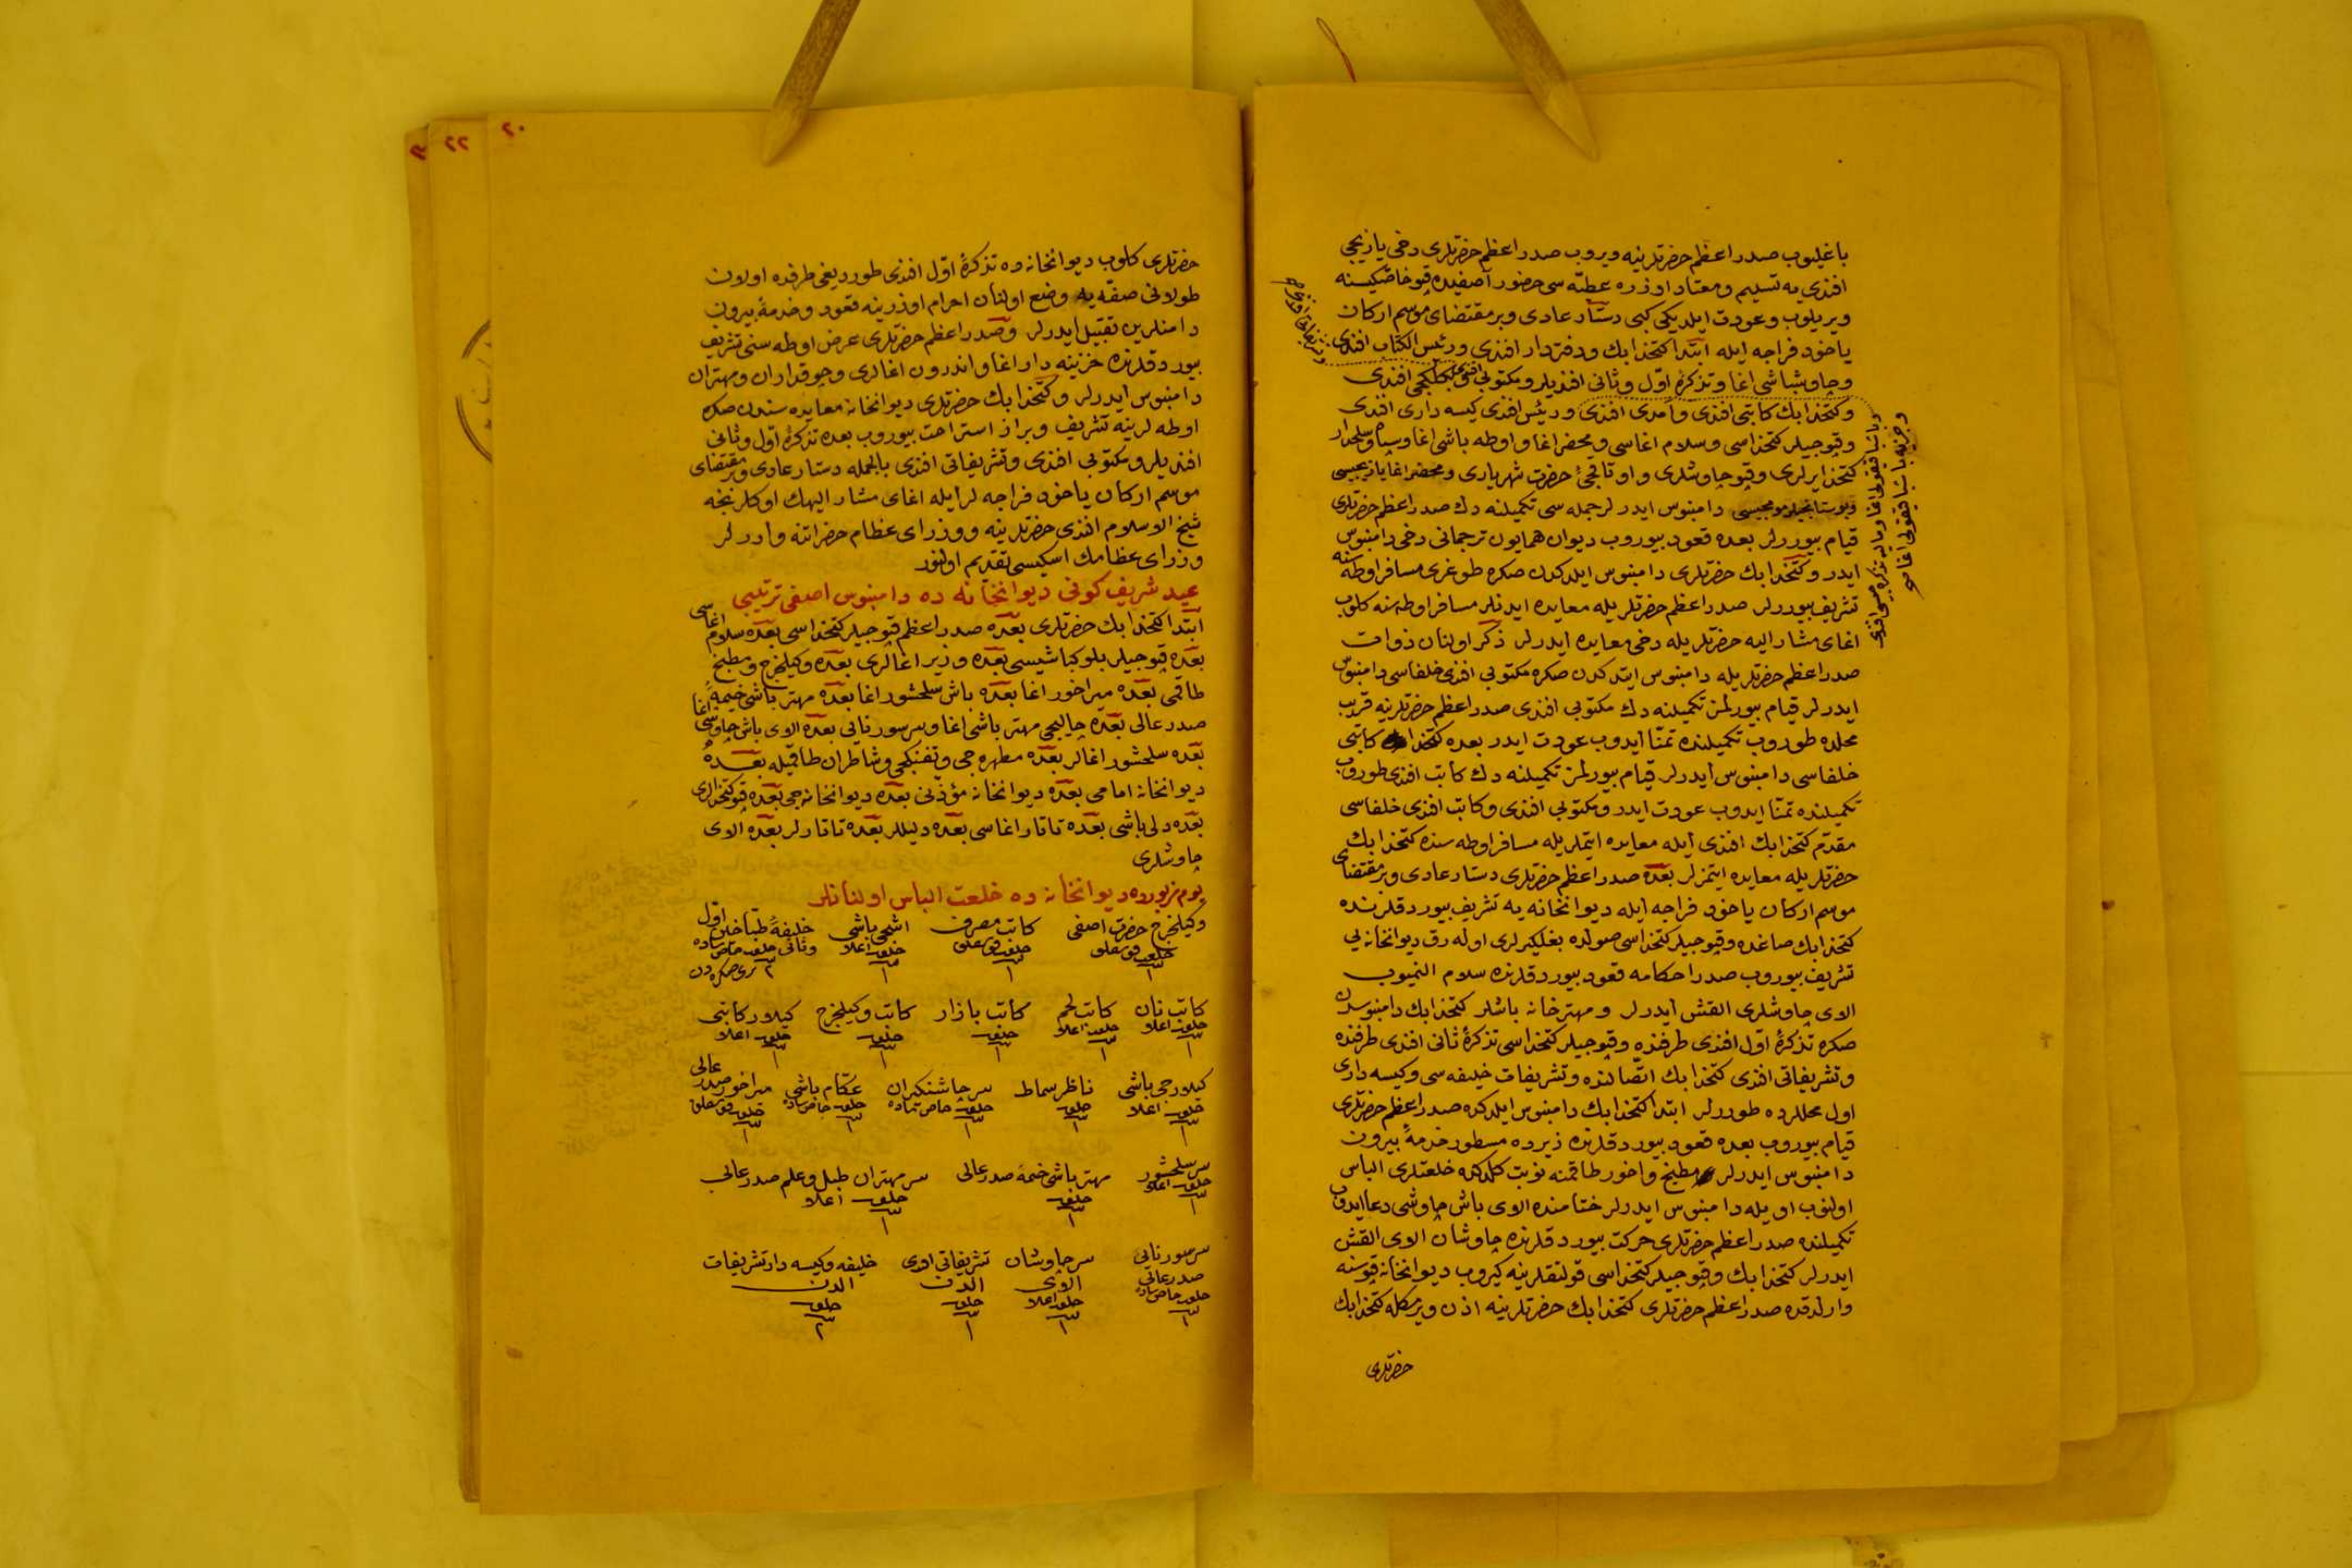 باغلیوب صدر اعظم حضرتلرینه ویروب صدر اعظم حضرتلری دخی یازیجی
افندی یه تسلیم ومعتاد اوزره عطیه سی حضور آصفیده قپو خاصکیسنه
ویریلوب وعودت ایلدیکی کبی دستار عادی وبر مقتضای موسم ارکان
یاخود فراجه ایله ابتدا کتخدا بك ودفتردار افندی ورئیس الکتاب افندی
وچاوشباشی اغا وتذکرهٔ اول وثانی افندیلر ومکتوبی افندی افندی
وکتخدا بك کاتبی افندی وآمدی افندی ورئیس افندی کیسه داری افندی
وقپوجیلر کتخداسی وسلام اغاسی ومحضر اغا واوطه باشی اغا وسپاه وسلحدار
کتخدا یرلری وقپو چاوشلری واوتاقجیٔ حضرت شهریاری ومحضر اغا یازیجیسی
دامنبوس ایدرلر جمله سی تکمیلنه دك صدر اعظم حضرتلری
قیام بیوررلر بعده قعود بیوروب دیوان همایون ترجمانی دخی دامنبوس
ایدر وکتخدا بك حضرتلری دامنبوس ایلدکدن صکره طوغری مسافر اوطه سنه
تشریف بیوررلر صدر اعظم حضرتلریله معایده ایدنلر مسافر اوطه سنه کلوب
اغای مشار الیه حضرتلریله دخی معایده ایدرلر ذکر اولنان ذوات
صدر اعظم حضرتلریله دامنبوس ایتدکدن صکره مکتوبی افندی خلفاسی دامنبوس
ایدرلر قیام بیورلمز تکمیلنه دك مکتوبی افندی صدر اعظم حضرتلرینه قریب
محلده طوروب تکمیلنده تمنا ایدوب عودت ایدر بعده کتخدا کاتبی
خلفاسی دامنبوس ایدرلر قیام بیورلمز تکمیلنه دك کاتب افندی طوروب
تکمیلنده تمنا ایدوب عودت ایدر ومکتوبی افندی وکاتب افندی خلفاسی
مقدم کتخدا بك افندی ایله معایده ایتملریله مسافر اوطه سنده کتخدا بك
حضرتلریله معایده ایتمزلر بعده صدر اعظم حضرتلری دستار عادی وبر مقتضای
موسم ارکان یاخود فراجه ایله دیوانخانه یه تشریف بیوردقلرنده
کتخدا بك صاغده وقپوجیلر کتخداسی صولده بغلکیرلری اوله رق دیوانخانه یی
تشریف بیوروب صدرا حکامه قعود بیوردقلرنده سلام النمیوب
الای چاوشلری القش ایدرلر ومهترخانه باشلر کتخدا بك دامنبوسدن
صکره تذکرهٔ اول افندی طرفنده وقپوجیلر کتخداسی تذکرهٔ ثانی افندی طرفنده
وتشریفاتی افندی کتخدا بك اتصالنده وتشریفات خلیفه سی وکیسه داری
اول محللرده طوررلر ابتدا کتخدا بك دامنبوس ایلدکده صدر اعظم حضرتلری
قیام بیوروب بعده قعود بیوردقلرنده زیرده مسطور خدمهٔ بیرون
دامنبوس ایدرلر مطبخ واخور طاقمنه نوبت کلدکده خلعتلری الباس
اولنوب اویله دامنبوس ایدرلر ختامنده الای باش چاوشی دعا ایدوب
تکمیلنده صدر اعظم حضرتلری حرکت بیوردقلرنده چاوشان الای القش
ایدرلر کتخدا بك وقپوجیلر کتخداسی قولتقلرینه کیروب دیوانخانه قپوسنه
وارلدقده صدر اعظم حضرتلری کتخدا بك حضرتلرینه اذن ویرمکله کتخدا بك
حضرتلری
حضرتلری کلوب دیوانخانه ده تذکرهٔ اول افندی طوردیغی طرفده اولان
طولانی صفه یه وضع اولنان احرام اوزرینه قعود وخدمهٔ بیرون
دامنلرین تقبیل ایدرلر وصدر اعظم حضرتلری عرض اوطه سنی تشریف
بیوردقلرنده خزینه دار اغا واندرون اغالری وچوقداران ومهتران
دامنبوس ایدرلر وکتخدا بك حضرتلری دیوانخانه معایده سندن صکره
اوطه لرینه تشریف وبراز استراحت بیوروب بعده تذکرهٔ اول وثانی
افندیلر ومکتوبی افندی وتشریفاتی افندی بالجمله دستار عادی وبر مقتضای
موسم ارکان یاخود فراجه لر ایله اغای مشار الیهك اوکلرنجه
شیخ الاسلام افندی حضرتلرینه ووزرای عظام حضراتنه واررلر
وزرای عظامك اسکیسی تقدیم اولنور
عید شریف کونی دیوانخانه ده دامنبوس اصفی ترتیبی
ابتدا کتخدا بك حضرتلری بعده صدر اعظم قپوجیلر کتخداسی بعده سلام اغاسی
بعده قپوجیلر بلوکباشیسی بعده وزیر اغالری بعده وکیلخرج ومطبخ
طاقمی بعده میراخور اغا بعده باش سلحشور اغا بعده مهتر باشی خیمهٔ
صدر عالی بعده چالیجی مهتر باشی اغا وسر سورنایی بعده الای باش چاوشی اغا
بعده سلحشور اغالر بعده مطهره جی وتفنکجی وشاطران طاقمیله بعده
دیوانخانه امامی بعده دیوانخانه مؤذنی بعده دیوانخانه جی بعده قپو کتخدالری
بعده دلی باشی بعده تاتار اغاسی بعده دلیلر بعده تاتارلر بعده الای
چاوشلری
یوم مزبورده دیوانخانه ده خلعت الباس اولنانلر
وکیلخرج حضرت اصفی کاتب مصرف اشجی باشی خلیفهٔ طباخین اول وثانی
کاتب نان کاتب لحم کاتب بازار کاتب وکیلخرج کیلار کاتبی
خلعت اعلا ١ خلعت اعلا ١ خلعت ١ خلعت ١ خلعت اعلا ١
کیلارجی باشی ناظر سماط سر چاشنکیران عکام باشی میراخور صدر عالی
سر سلحشور مهتر باشی خیمهٔ صدر عالی سر مهتران طبل وعلم صدر عالی
خلعت اعلا ١ خلعت ١ خلعت اعلا ١
سر سورنایی صدر عالی سر چاوشان الای تشریفاتی خلیفه وکیسه دار تشریفات
٢٠
٢٢